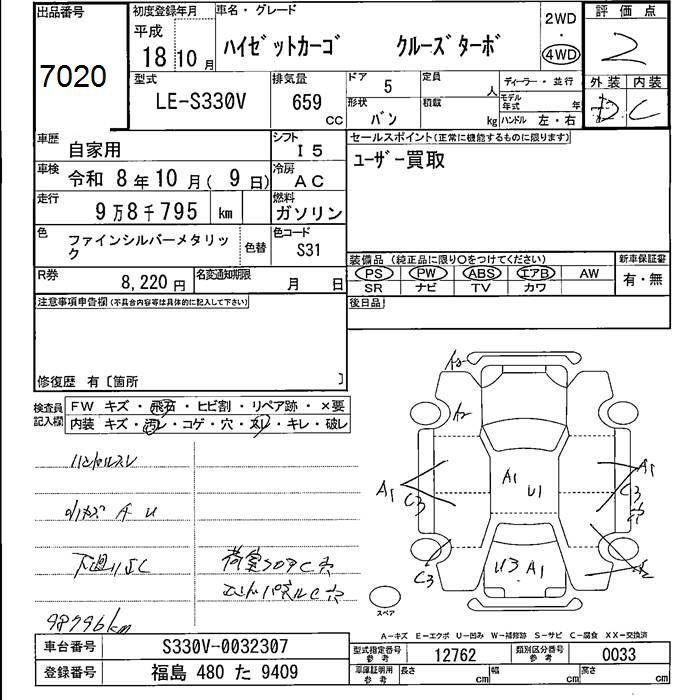 出品番号
7020
初度登録年月
平成
18年10月
車名・グレード
ハイゼットカーゴ クルーズターボ
2WD
・
4WD
評価点
2
型式
LE-S330V
排気量
659
CC
ドア
5
定員
人
形状
バン
積載
kg
ディーラー・並行
モデル年式
年
ハンドル 左・右
外装 内装
D C
車歴
自家用
シフト
I5
車検
令和 8年10月(9日)
冷房
AC
走行
9万8千795 km
燃料
ガソリン
色
ファインシルバーメタリック
色替
色コード
S31
R券
8,220円
名変通知期限
月 日
セールスポイント(正常に機能するものに限ります)
ユーザー買取
装備品(純正品に限り○をつけてください)
PS PW ABS エアB AW
SR ナビ TV カワ
新車保証書
有・無
後日品
注意事項申告欄(不具合内容等は具体的に記入して下さい)
修復歴 有〔箇所 〕
検査員記入欄
FW キズ・飛石・ヒビ割・リペア跡・×要
内装 キズ・汚レ・コゲ・穴・スレ・キレ・破レ
ハンドルスレ
小キズ A U
下廻りSC
荷室フロアC穴
エンドパネルC穴
98796km
A2
A2
A1
C3
C3
A1
U1
U3 A1
A1
C3
穴
スペア
A-キズ E-エクボ U-凹み W-補修跡 S-サビ C-腐食 XX-交換済
車台番号
S330V-0032307
登録番号
福島 480 た 9409
型式指定番号
参考
12762
類別区分番号
参考
0033
車両証明用
参考
長さ
cm
幅
cm
高さ
cm